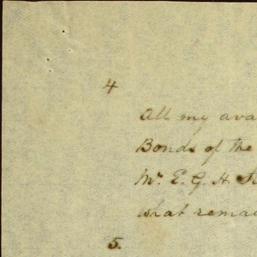 4
All my ava
Bonds of the
Mr. E. G. H.
what remai
5.